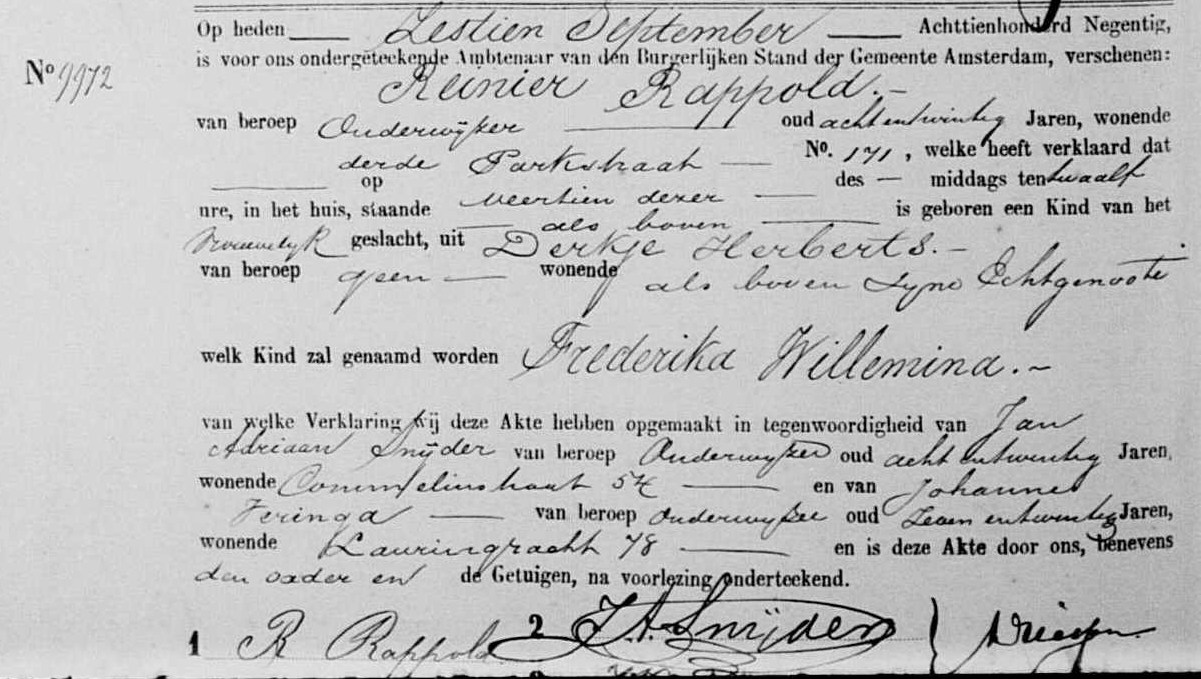 Op heden Zestien September Achttienhonderd Negentig,
is voor ons ondergeteekende Ambtenaar van den Burgerlijken Stand der Gemeente Amsterdam, verschenen:
No 9972
Reinier Rappold.
van beroep Onderwijzer oud achtentwintig Jaren, wonende
derde Parkstraat No. 171, welke heeft verklaard dat
op veertien dezer des — middags ten twaalf
ure, in het huis, staande als boven is geboren een Kind van het
Vrouwelijk geslacht, uit Derkje Herberts.
van beroep geen wonende als boven Zijne Echtgenoote
welk Kind zal genaamd worden Frederika Willemina.
van welke Verklaring wij deze Akte hebben opgemaakt in tegenwoordigheid van Jan
Adriaan Snijder van beroep Onderwijzer oud acht entwintig Jaren,
wonende Commelinstraat 54 en van Johannes
Feringa van beroep onderwijzer oud Zeven entwintig Jaren,
wonende Lauriergracht 78 en is deze Akte door ons, benevens
den vader en de Getuigen, na voorlezing onderteekend.
1 R Rappold 2 J.A. Snijder